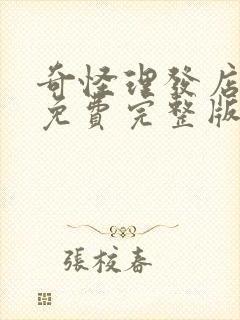 奇怪理發店
免費完整版
張校春